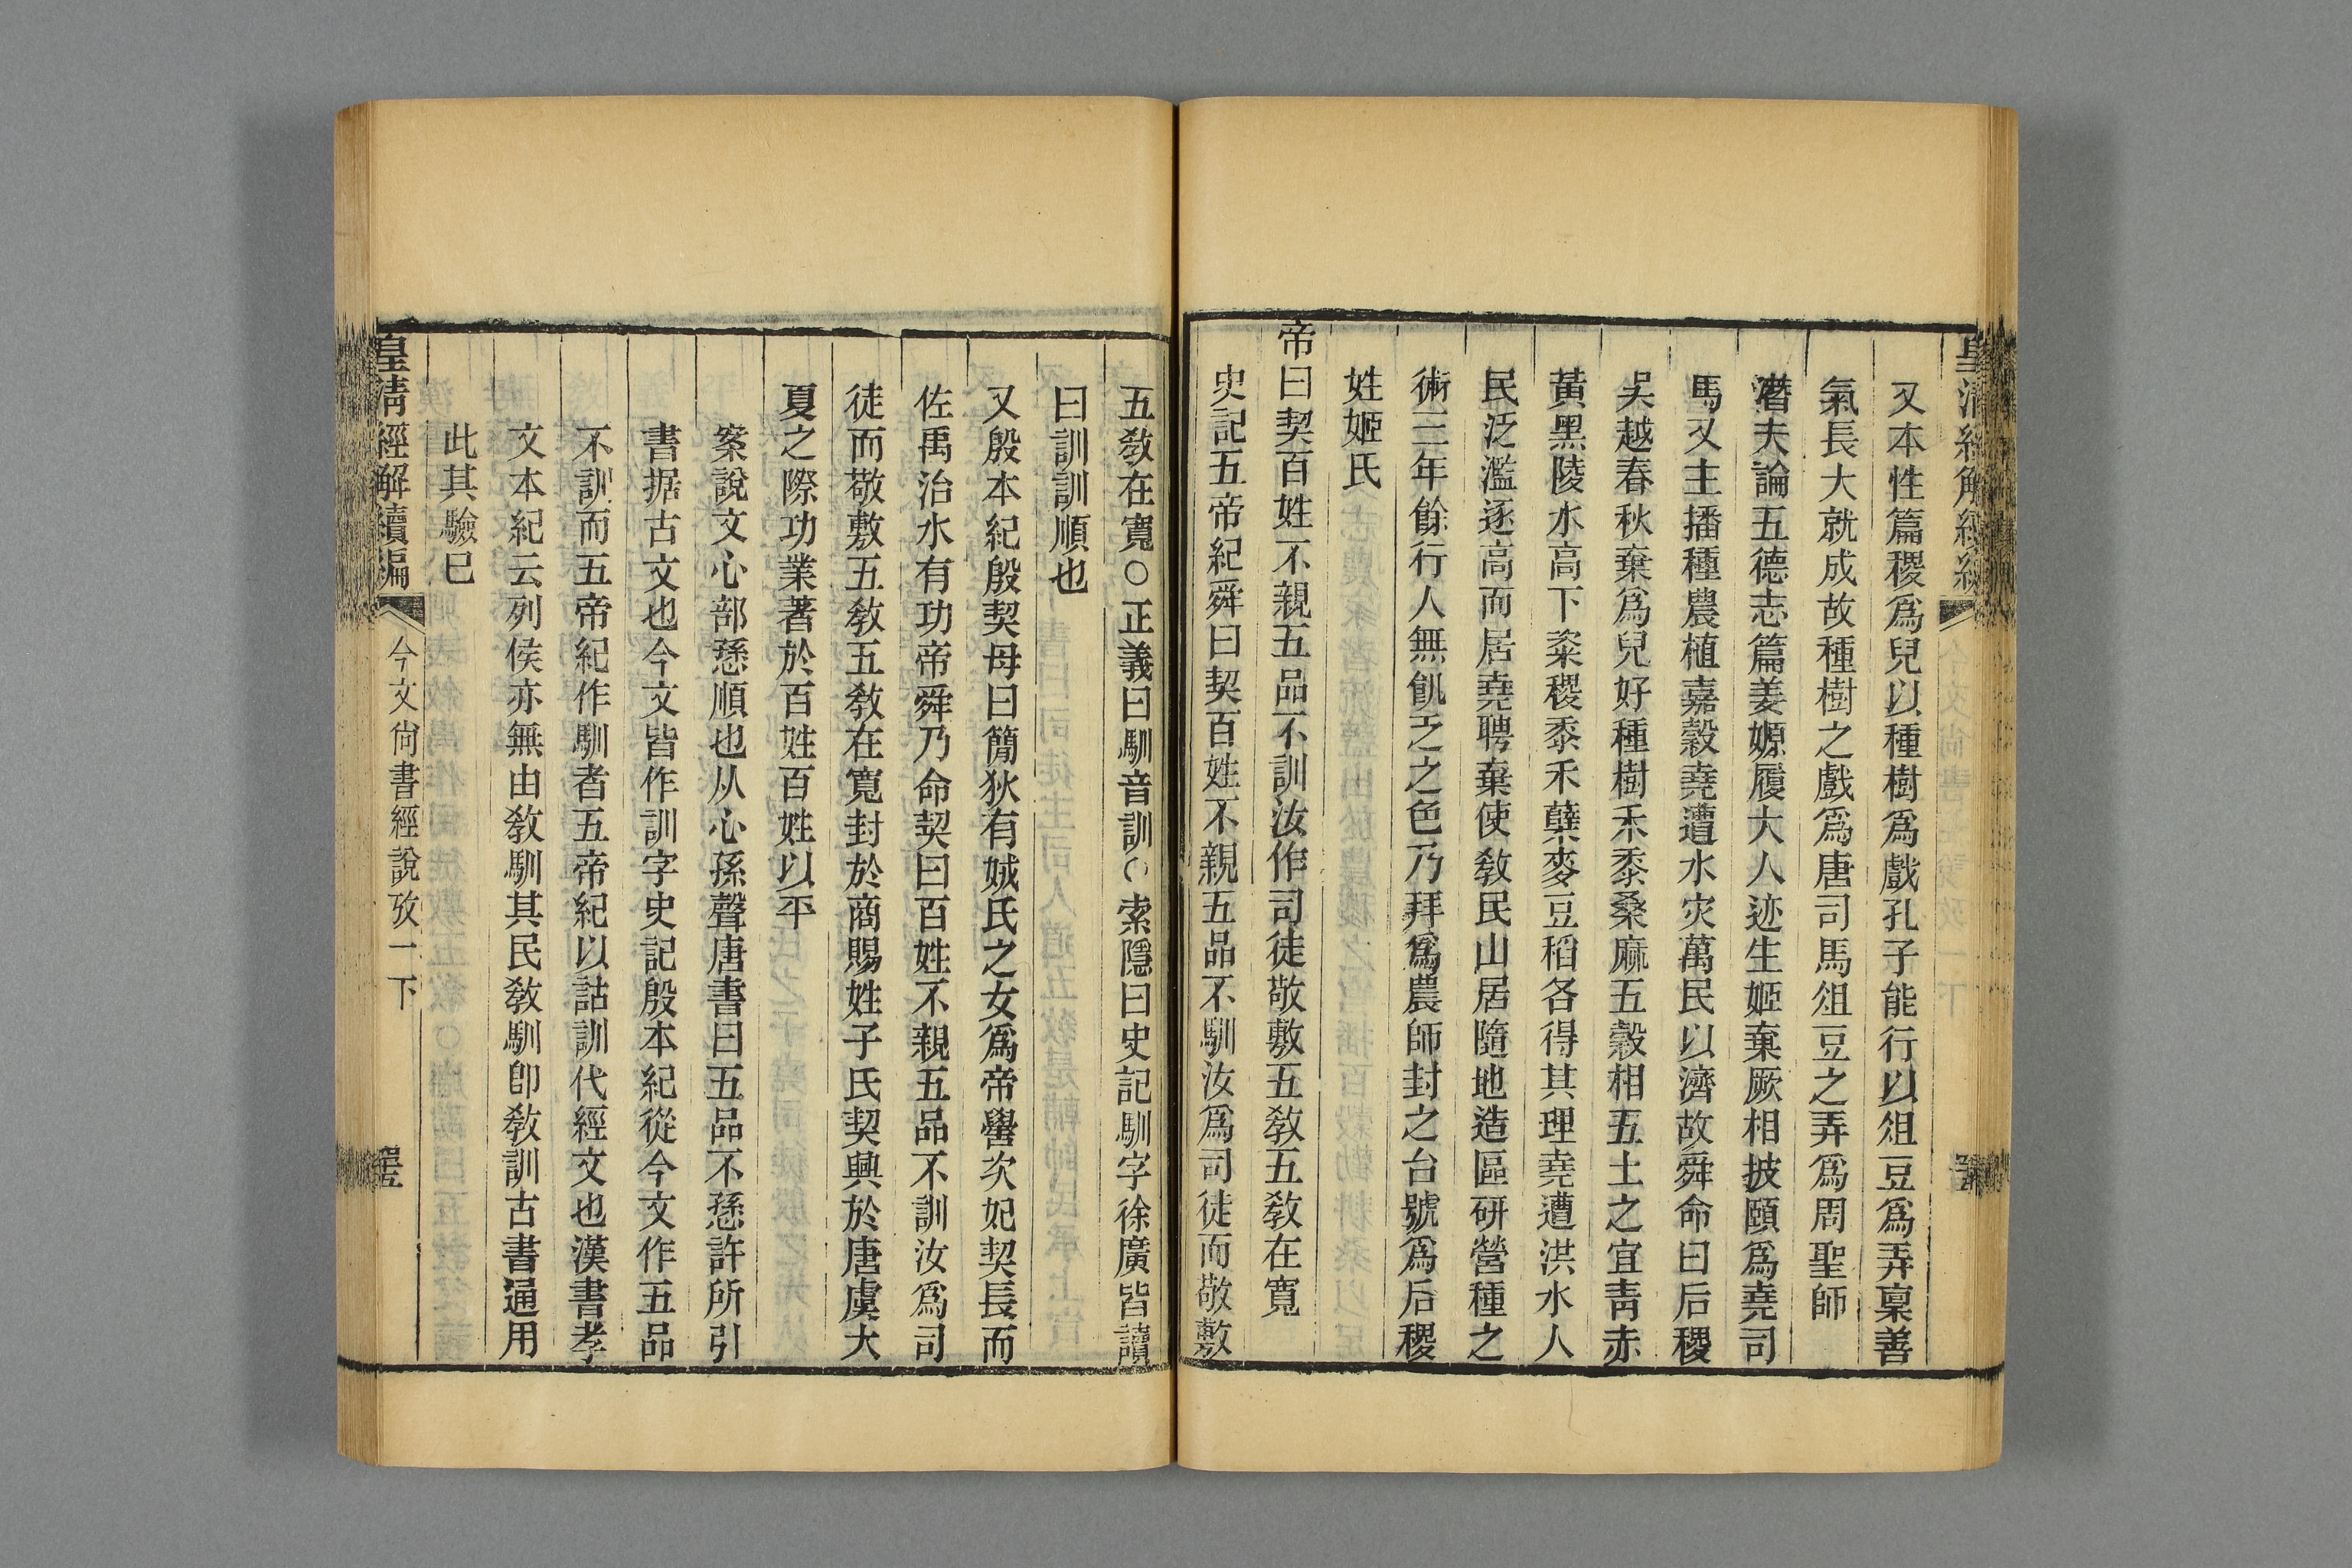 又本性篇稷爲兒以種樹爲戲孔子能行以俎豆爲弄稟善
氣長大就成故種樹之戲爲唐司馬俎豆之弄爲周聖師
潛夫論五德志篇姜嫄履大人迹生姬棄厥相披頤爲堯司
馬又主播種農植嘉穀堯遭水灾萬民以濟故舜命曰后稷
吴越春秋棄爲兒好種樹禾黍桑麻五穀相五土之宜靑赤
黃黑陵水高下粢稷黍禾蕖麥豆稻各得其理堯遭洪水人
民泛濫逐高而居堯聘棄使敎民山居隨地造區研營種之
術三年餘行人無飢乏之色乃拜爲農師封之台號爲后稷
姓姬氏
帝曰契百姓不親五品不訓汝作司徒敬敷五敎五敎在寬
史記五帝紀舜曰契百姓不親五品不馴汝爲司徒而敬敷
五敎在寬○正義曰馴音訓○索隱曰史記馴字徐廣皆讀
曰訓訓順也
又殷本紀殷契母曰簡狄有娀氏之女爲帝嚳次妃契長而
佐禹治水有功帝舜乃命契曰百姓不親五品不訓汝爲司
徒而敬敷五敎五敎在寬封於商賜姓子氏契興於唐虞大
夏之際功業著於百姓百姓以平
案說文心部愻順也从心孫聲唐書曰五品不愻許所引
書据古文也今文皆作訓字史記殷本紀從今文作五品
不訓而五帝紀作馴者五帝紀以詁訓代經文也漢書孝
文本紀云列侯亦無由敎馴其民敎馴卽敎訓古書通用
此其驗已
皇淸經解續編
今文尙書經說攷一下